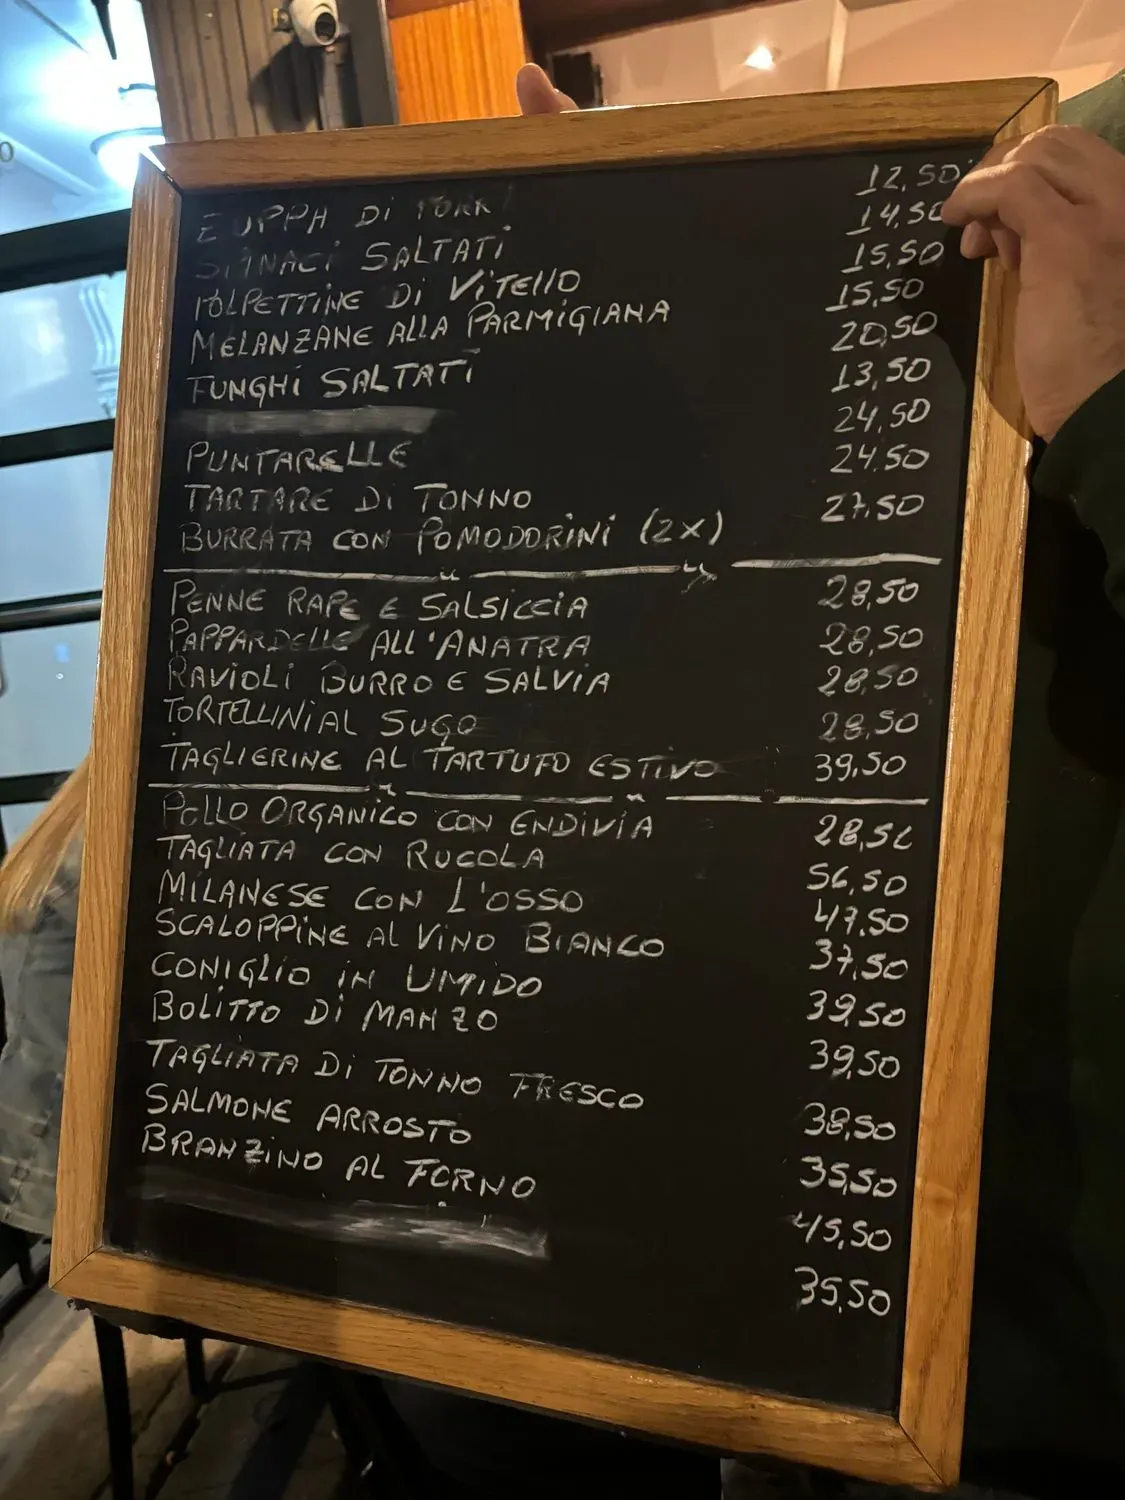 ZUPPA DI PORRI 12,50
SPINACI SALTATI 14,50
POLPETTINE DI VITELLO 15,50
MELANZANE ALLA PARMIGIANA 15,50
FUNGHI SALTATI 20,50
13,50
PUNTARELLE 24,50
TARTARE DI TONNO 24.50
BURRATA CON POMODORINI (2X) 27,50
PENNE RAPE E SALSICCIA 28,50
PAPPARDELLE ALL'ANATRA 28,50
RAVIOLI BURRO E SALVIA 28,50
TORTELLINI AL SUGO 28,50
TAGLIERINE AL TARTUFO ESTIVO 39,50
POLLO ORGANICO CON ENDIVIA 28,50
TAGLIATA CON RUCOLA 56,50
MILANESE CON L'OSSO 47,50
SCALOPPINE AL VINO BIANCO 37,50
CONIGLIO IN UMIDO 39,50
BOLITTO DI MANZO 39,50
TAGLIATA DI TONNO FRESCO 38,50
SALMONE ARROSTO 35,50
BRANZINO AL FORNO 45,50
35,50